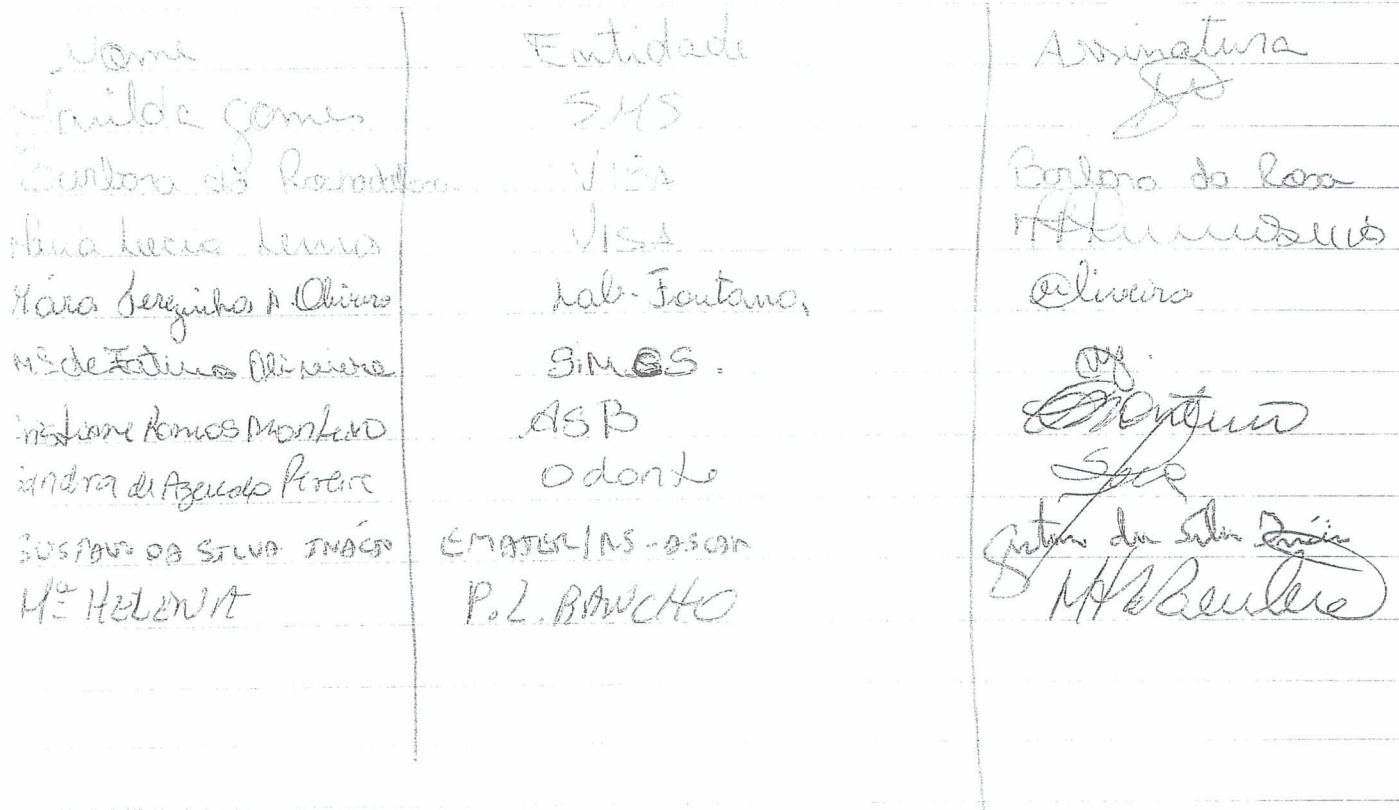 Nome Entidade Assinatura
Marilda Gomes SMS
Barbara da Rosa VISA Barbara da Rosa
Maria Lucia Lemos VISA
Mara Terezinha A. Oliveira Lab. Fontana, Oliveira
Mª de Fatima Oliveira
Cristiane Ramos Monteiro ASB Monteiro
Sandra de Azevedo Pereira Odonto
GUSTAVO DA SILVA INÁCIO EMATER/RS-ASCAR Gustavo da Silva Inácio
Mª HELENA P.L. RANCHO